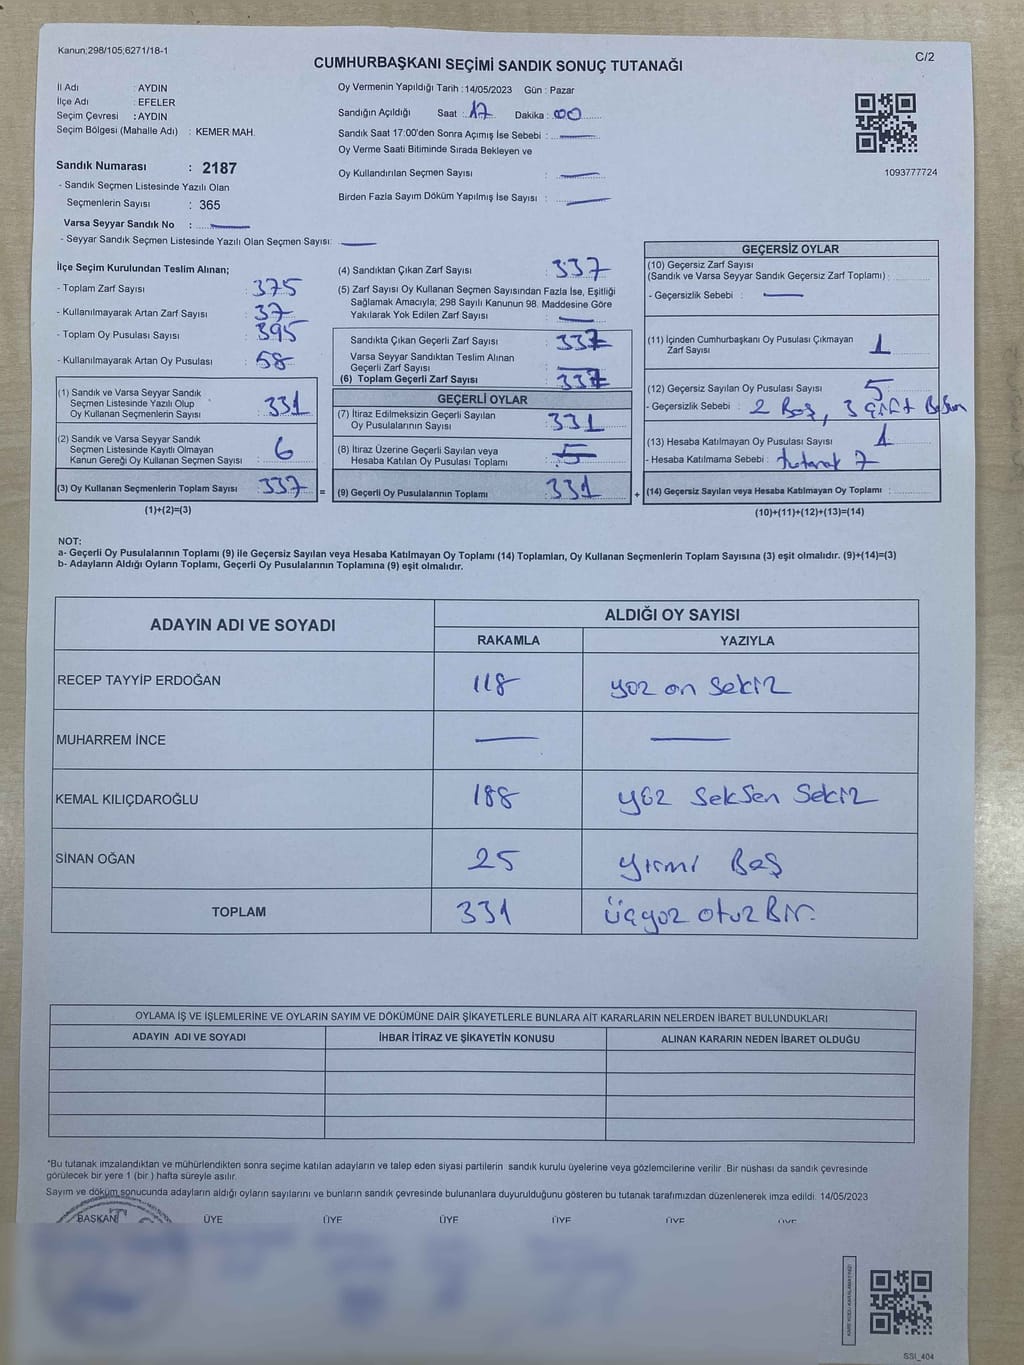 Kanun,298/105;6271/18-1
C/2
CUMHURBAŞKANI SEÇİMİ SANDIK SONUÇ TUTANAĞI
İl Adı : AYDIN
İlçe Adı : EFELER
Seçim Çevresi : AYDIN
Seçim Bölgesi (Mahalle Adı) : KEMER MAH.
Oy Vermenin Yapıldığı Tarih : 14/05/2023 Gün : Pazar
Sandığın Açıldığı Saat : 17 Dakika : 00
Sandık Saat 17:00'den Sonra Açımış İse Sebebi :
Oy Verme Saati Bitiminde Sırada Bekleyen ve
Oy Kullandırılan Seçmen Sayısı :
Birden Fazla Sayım Döküm Yapılmış İse Sayısı :
1093777724
Sandık Numarası : 2187
- Sandık Seçmen Listesinde Yazılı Olan
Seçmenlerin Sayısı : 365
Varsa Seyyar Sandık No :
- Seyyar Sandık Seçmen Listesinde Yazılı Olan Seçmen Sayısı:
İlçe Seçim Kurulundan Teslim Alınan;
- Toplam Zarf Sayısı : 375
- Kullanılmayarak Artan Zarf Sayısı : 37
- Toplam Oy Pusulası Sayısı : 395
- Kullanılmayarak Artan Oy Pusulası : 58
(1) Sandık ve Varsa Seyyar Sandık
Seçmen Listesinde Yazılı Olup
Oy Kullanan Seçmenlerin Sayısı : 331
(2) Sandık ve Varsa Seyyar Sandık
Seçmen Listesinde Kayıtlı Olmayan
Kanun Gereği Oy Kullanan Seçmen Sayısı : 6
(3) Oy Kullanan Seçmenlerin Toplam Sayısı : 337 =
(1)+(2)=(3)
(4) Sandıktan Çıkan Zarf Sayısı : 337
(5) Zarf Sayısı Oy Kullanan Seçmen Sayısından Fazla İse, Eşitliği
Sağlamak Amacıyla; 298 Sayılı Kanunun 98. Maddesine Göre
Yakılarak Yok Edilen Zarf Sayısı :
Sandıkta Çıkan Geçerli Zarf Sayısı : 337
Varsa Seyyar Sandıktan Teslim Alınan
Geçerli Zarf Sayısı :
(6) Toplam Geçerli Zarf Sayısı : 337
GEÇERLİ OYLAR
(7) İtiraz Edilmeksizin Geçerli Sayılan
Oy Pusulalarının Sayısı : 331
(8) İtiraz Üzerine Geçerli Sayılan veya
Hesaba Katılan Oy Pusulası Toplamı : 5
(9) Geçerli Oy Pusulalarının Toplamı : 331 +
GEÇERSİZ OYLAR
(10) Geçersiz Zarf Sayısı
(Sandık ve Varsa Seyyar Sandık Geçersiz Zarf Toplamı) :
- Geçersizlik Sebebi :
(11) İçinden Cumhurbaşkanı Oy Pusulası Çıkmayan
Zarf Sayısı : 1
(12) Geçersiz Sayılan Oy Pusulası Sayısı : 5
- Geçersizlik Sebebi : 2 Boş, 3 çift Basım
(13) Hesaba Katılmayan Oy Pusulası Sayısı : 1
- Hesaba Katılmama Sebebi : tutanak 7
(14) Geçersiz Sayılan veya Hesaba Katılmayan Oy Toplamı :
(10)+(11)+(12)+(13)=(14)
NOT:
a- Geçerli Oy Pusulalarının Toplamı (9) ile Geçersiz Sayılan veya Hesaba Katılmayan Oy Toplamı (14) Toplamları, Oy Kullanan Seçmenlerin Toplam Sayısına (3) eşit olmalıdır. (9)+(14)=(3)
b- Adayların Aldığı Oyların Toplamı, Geçerli Oy Pusulalarının Toplamına (9) eşit olmalıdır.
ADAYIN ADI VE SOYADI
ALDIĞI OY SAYISI
RAKAMLA YAZIYLA
RECEP TAYYİP ERDOĞAN 118 yüz on sekiz
MUHARREM İNCE
KEMAL KILIÇDAROĞLU 188 yüz seksen sekiz
SİNAN OĞAN 25 yirmi Beş
TOPLAM 331 üçyüz otuz Bir.
OYLAMA İŞ VE İŞLEMLERİNE VE OYLARIN SAYIM VE DÖKÜMÜNE DAİR ŞİKAYETLERLE BUNLARA AİT KARARLARIN NELERDEN İBARET BULUNDUKLARI
ADAYIN ADI VE SOYADI İHBAR İTİRAZ VE ŞİKAYETİN KONUSU ALINAN KARARIN NEDEN İBARET OLDUĞU
*Bu tutanak imzalandıktan ve mühürlendikten sonra seçime katılan adayların ve talep eden siyasi partilerin sandık kurulu üyelerine veya gözlemcilerine verilir. Bir nüshası da sandık çevresinde
görülecek bir yere 1 (bir) hafta süreyle asılır.
Sayım ve döküm sonucunda adayların aldığı oyların sayılarını ve bunların sandık çevresinde bulunanlara duyurulduğunu gösteren bu tutanak tarafımızdan düzenlenerek imza edildi. 14/05/2023
BAŞKAN ÜYE ÜYE ÜYE ÜYE ÜYE ÜYE
SSI_404